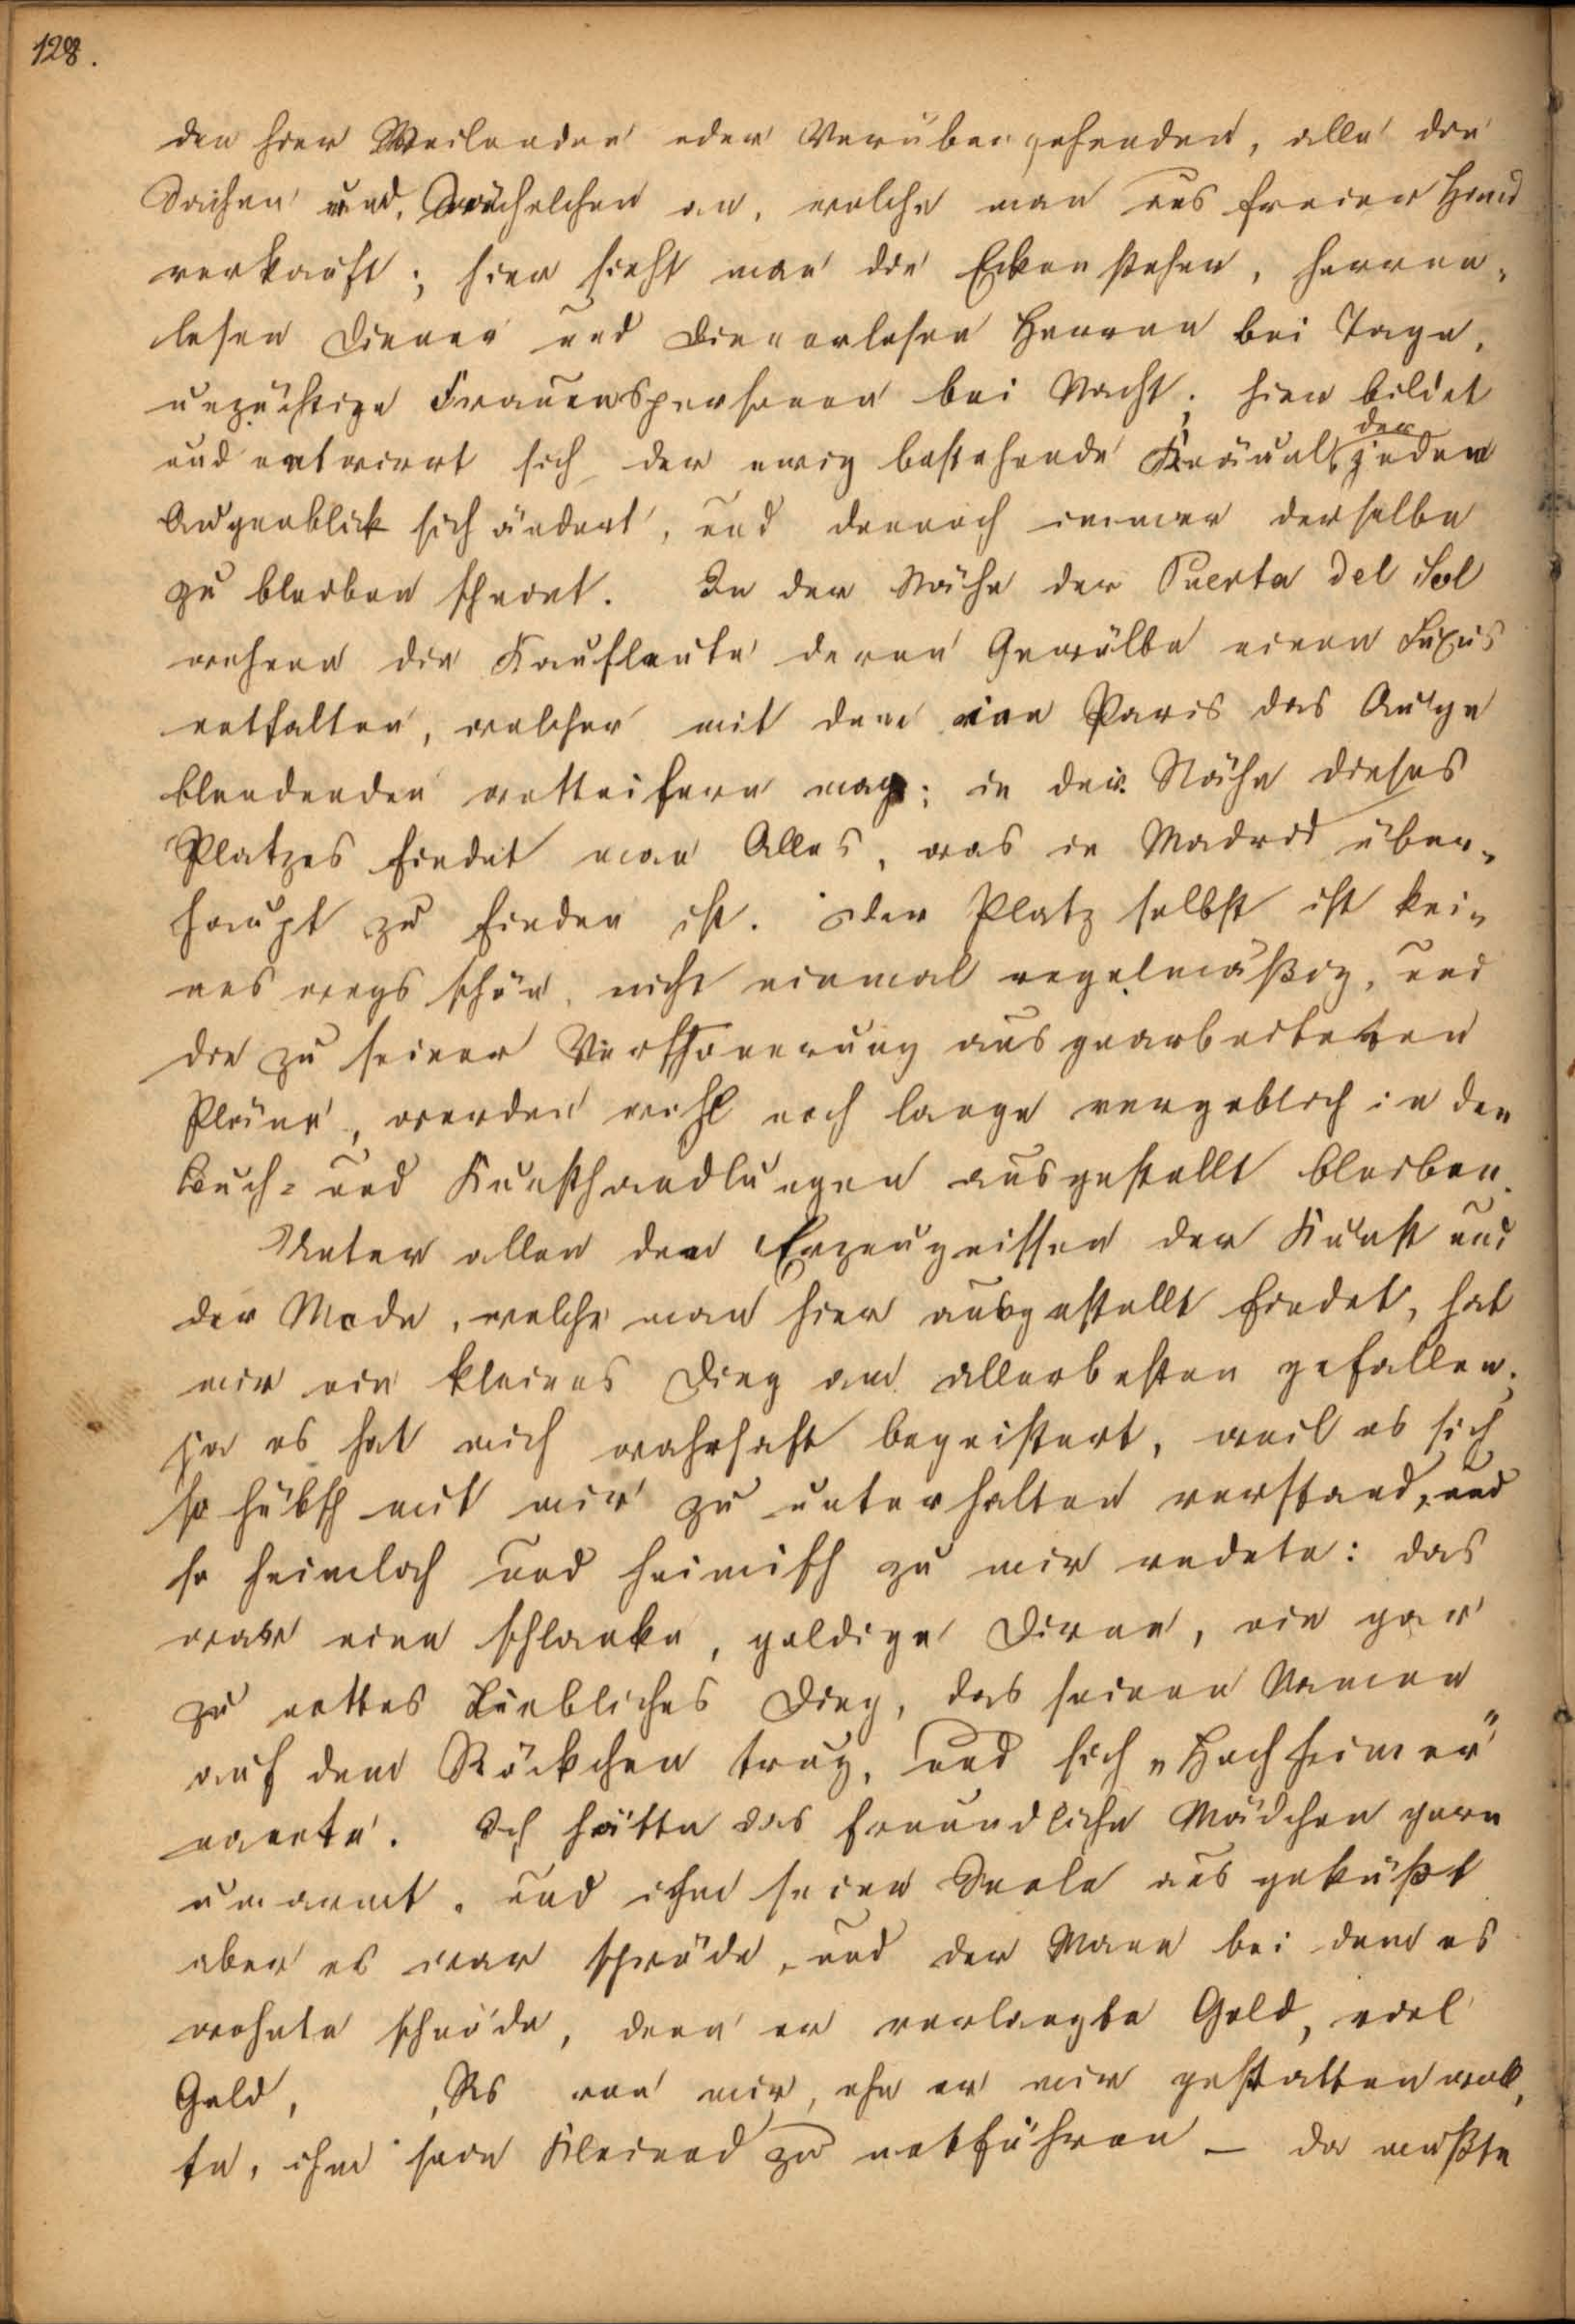 128.
den hier Weilenden oder Vorübergehenden, alle die
Sachen und Sächelchen an, welche man aus freier Hand
verkauft; hier sieht man die Eckensteher, herren-
losen Diener und dienerlosen Herren bei Tage,
unzüchtige Frauenspersonen bei Nacht; hier bildet
und entwirrt sich der ewig bestehende Knäuel, der jeden
Augenblick sich ändert, und dennoch immer derselbe
zu bleiben scheint. In der Nähe der Puerta del Sol
wohnen die Kaufleute deren Gewölbe einen Luxus
entfalten, welcher mit dem in Paris das Auge
blendenden wetteifern mag; in der Nähe dieses
Platzes findet man Alles, was in Madrid über-
haupt zu finden ist. Der Platz selbst ist kei-
nes wegs schön, nicht einmal regelmäßig, und
die zu seiner Verschönerung ausgearbeiteten
Pläne, werden wohl noch lange vergeblich in den
Buch- und Kunsthandlungen ausgestellt bleiben.
Unter allen den Erzeugnissen der Kunst und
der Mode, welche man hier ausgestellt findet, hat
mir ein kleines Ding am allerbesten gefallen;
ja es hat mich wahrhaft begeistert, weil es sich
so hübsch mit mir zu unterhalten verstand, und
so heimlich und heimisch zu mir redete: das
war eine schlanke, goldige Dirne, ein gar
zu nettes liebliches Ding, das seinen Namen
auf dem Röckchen trug, und sich „Hochheimer"
nannte. Ich hätte das freundliche Mädchen gern
umarmt, und ihm seine Seele ausgeküßt
aber es war spröde, und der Mann bei dem es
wohnte schnöde, denn er verlangte Geld, viel
Geld, Rs von mir, ehe er mir gestatten woll,
te, ihm sein Kleinod zu entführen — da mußte